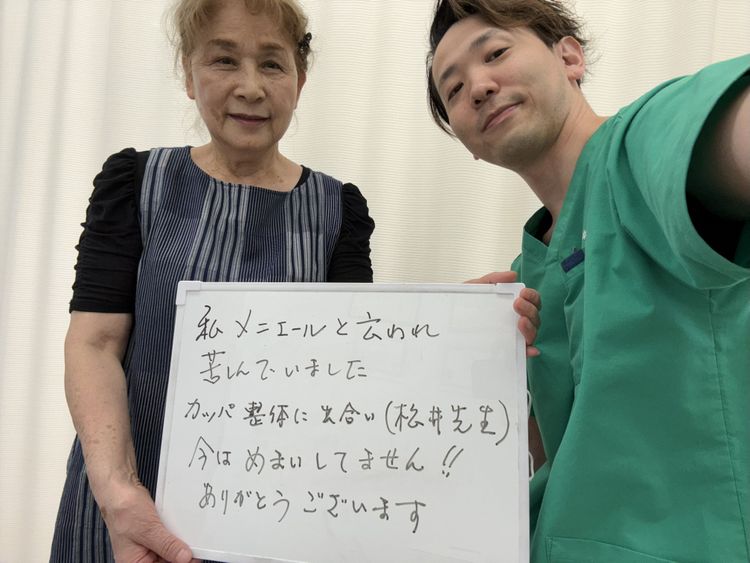 私 メニエールと云われ
苦しんでいました
カッパ整体に出合い(松井先生)
今は めまいしてません!!
ありがとうございます